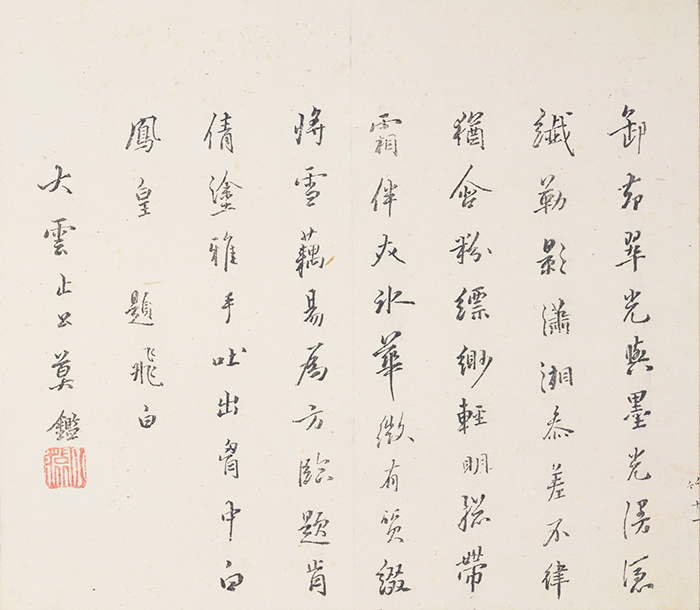 卸却翠光與墨光
纖勒影瀟湘參差不律
猶含粉縹緲輕明帶
霜伴友冰華微有質綴
將雪藕易為方臨題肯
倩塗雅手吐出胷中白
鳳皇 題飛白
大雲止公莫鑑